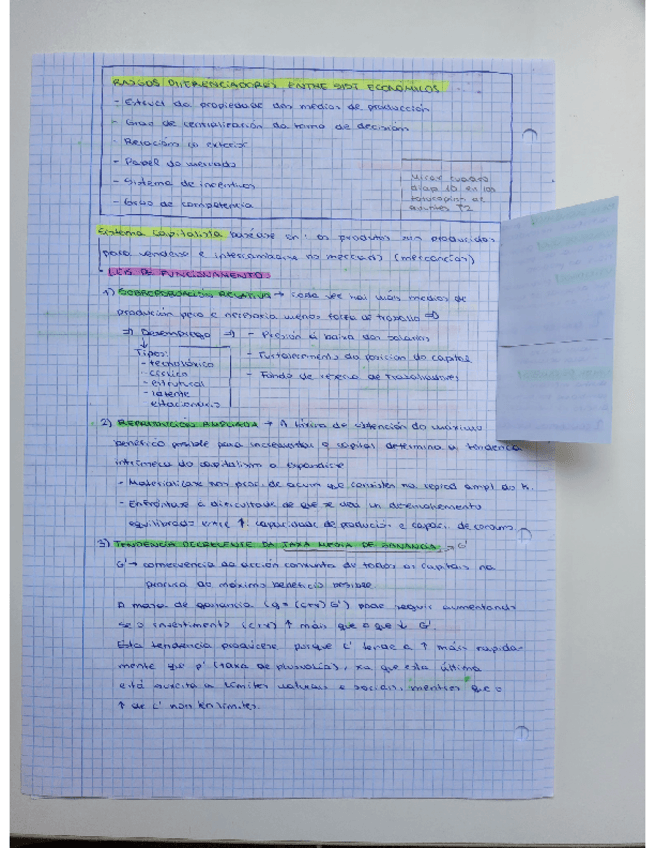 RASGOS DIFERENCIADORES ENTRE SIST ECONÓMICOS
- Estruct da propiedade dos medios de producción
- Grao de centralización da toma de decisións
- Relacións co exterior
- Papel do mercado
- Sistema de incentivos
- Grao de competencia
cuadro
diap 10 en los
apuntes T2
Sistema capitalista baséase en: os produtos son producidos
para venderse e intercambiarse no mercado (mercancías)
- LEIS DE FUNCIONAMENTO
1) SOBREPOBOACIÓN RELATIVA → cada vez hai máis medios de
produción pero é necesaria menos forza de traballo ⇒
⇒ Desemprego ⇒ - Presión á baixa dos salarios
Tipos: - Fortalecemento da posición do capital
- tecnolóxico
- cíclico - Fondo de reserva de traballadores
- estrutural
- latente
estacionario
2) REPRODUCIÓN AMPLIADA → A lóxica de obtención do máximo
beneficio posible para incrementar o capital determina a tendencia
intrínseca do capitalismo a expandirse
- Materialízase nos proc. de acum que consisten na reprod ampl. do K.
- Enfróntase á dificultade de que se dea un desenvolvemento
equilibrado entre ↑ capacidade de produción e capaci. de consumo.
3) TENDENCIA DECRECENTE DA TAXA MEDIA DE GANANCIA → G'
G' → consecuencia da acción conxunta de todos os capitais na
procura do máximo beneficio posible.
A masa de ganancia (g = (c+v) G') pode seguir aumentando
se o investimento (c+v) ↑ máis que o que ↓ G'.
Esta tendencia prodúcese porque c' tende a ↑ máis rapida-
mente que p' (taxa de plusvalía), xa que esta última
está suxeita a límites naturais e sociais, mentres que o
↑ de c' non ten límites.